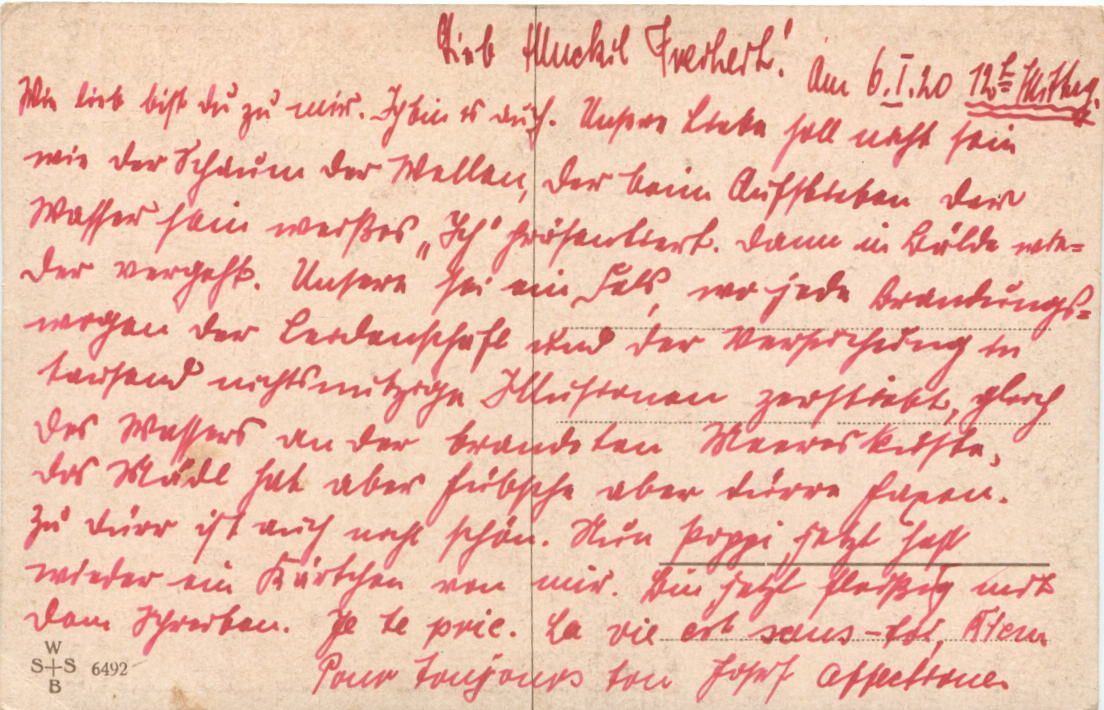 Lieb Muckil
Am 6.I.20 12h Mittag.
Wie lieb bist du zu mir. Ich bin es auch. Unsere Liebe soll nicht sein
wie der Schaum der Wellen, der beim Aufstieben der
Wasser sein weißes „Ich" präsentiert. Dann in Bälde wie=
der vergeht. Unsere sei ein Fels, wo jede Brandungs=
wogen der Leidenschaft und der Versuchung in
tausend nichtsnutzige Illusionen zerstiebt, gleich
des Wassers an der Meeresküste.
Das Mädl hat aber hübsche aber dürre Haxen.
Zu dürr ist auch nicht schön. Nun Poppi jetzt hast
wieder ein Kärtchen von mir. Bin jetzt fleißig mit
dem Schreiben. Je te prie. La vie est sans-toi, Rien
Pour toujours ton Josef
W
S+S 6492
B